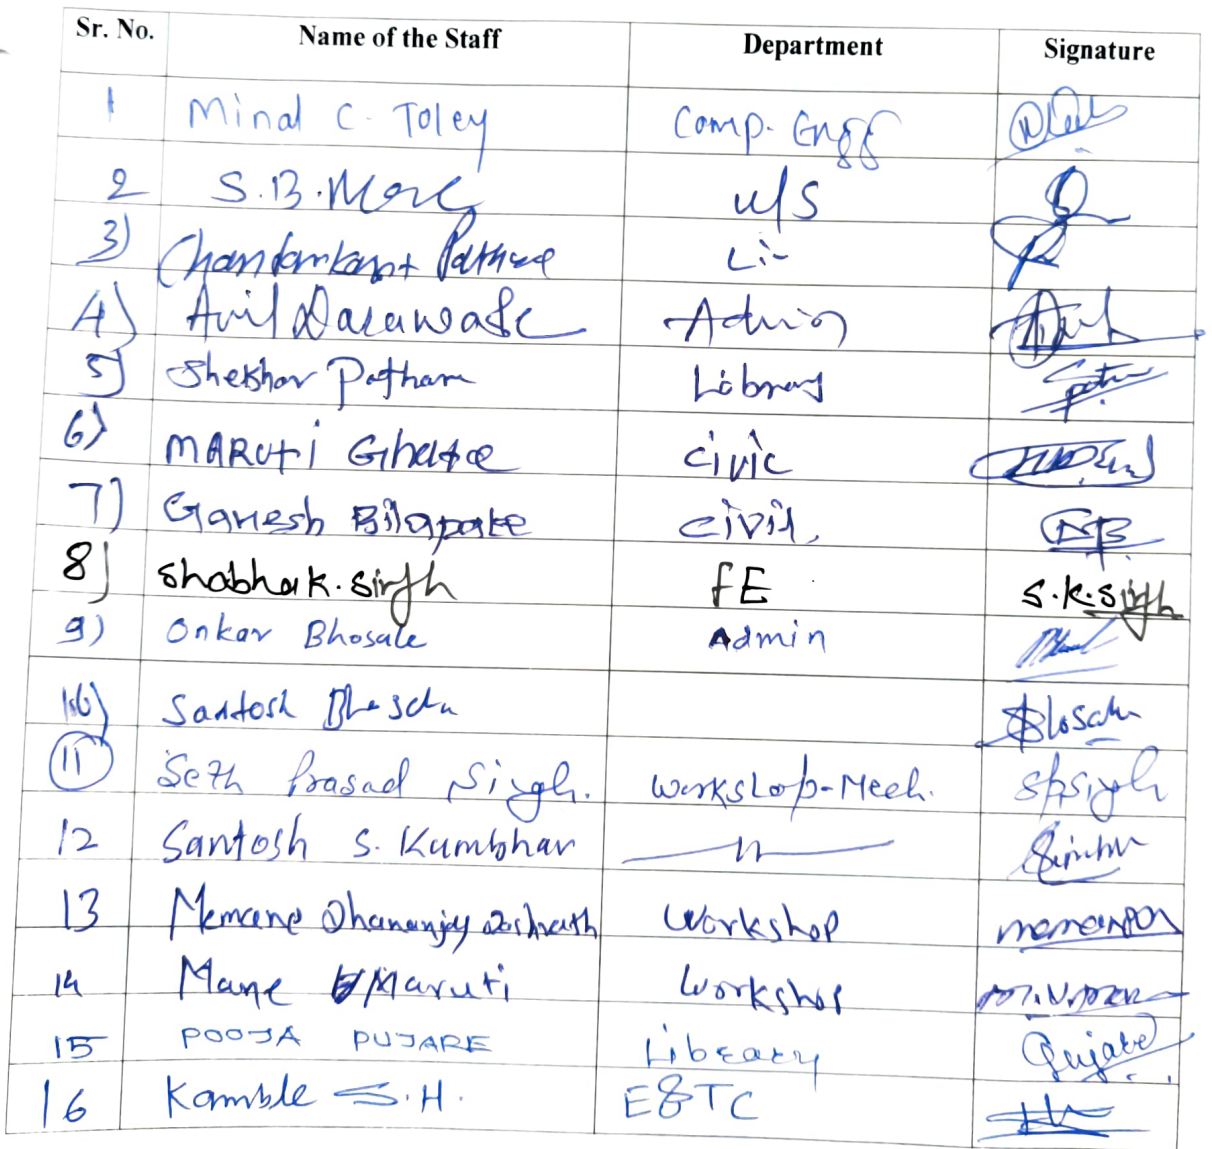 Sr. No. Name of the Staff Department Signature
1 Minal C. Toley Comp. Engg
2 S.B. More W/S
3) Chandrakant Li-
4) Anil Darawade Admin
5) Shekhar Pathan Library
6) MARUti Ghatge civic
7) Ganesh Bilapate civil
8) Shobha k. Singh FE S.K.Singh
9) Onkar Bhosale Admin
10) Santosh Bhosale Bhosale
11 Seth Prasad Singh. Workshop-Mech. Spsingh
12 Santosh S. Kumbhar -11-
13 Memane Dhananjay Dashrath Workshop
14 Mane Maruti Workshop
15 POOJA PUJARE Library Pujare
16 Kamble S.H. E&TC